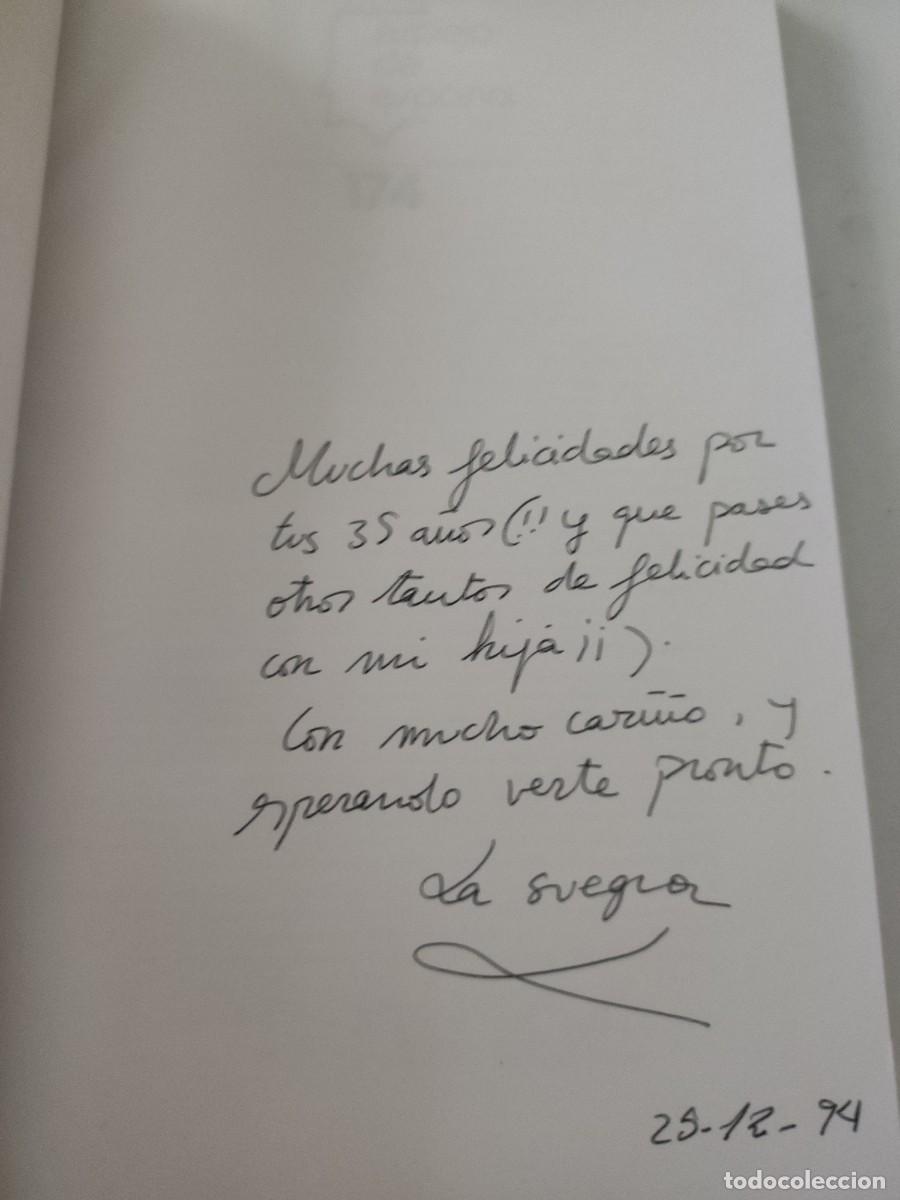 174
Muchas felicidades por
tus 35 años (!! y que pases
otros tantos de felicidad
con mi hija ¡¡).
Con mucho cariño, y
esperando verte pronto.
La suegra
-12-94
todocoleccion